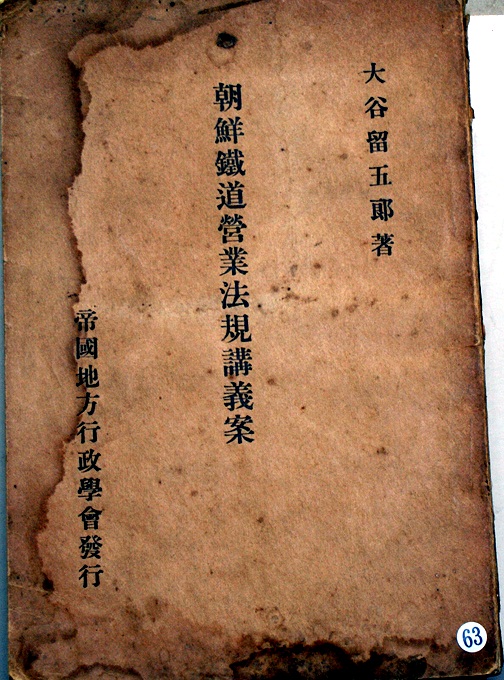 大谷留五郎著
朝鮮鐵道營業法規講義案
帝國地方行政學會發行
63